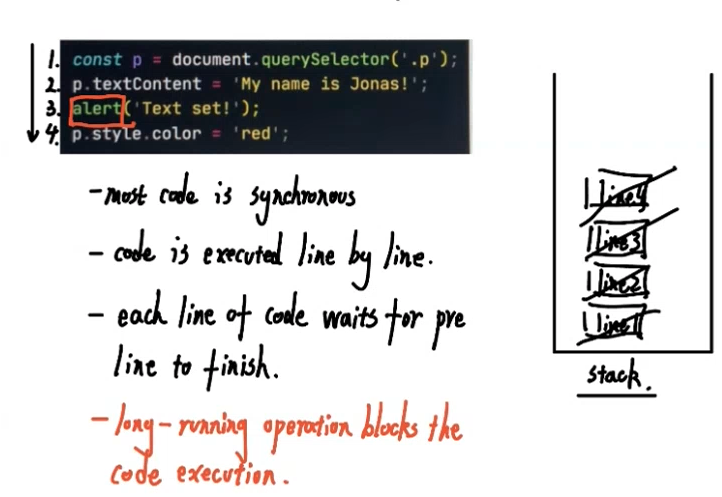 1. const p = document.querySelector('.p');
2. p.textContent = 'My name is Jonas!';
3. alert('Text set!');
4. p.style.color = 'red';
- most code is synchronous
- code is executed line by line.
- each line of code waits for pre
line to finish.
- long-running operation blocks the
code execution.
line4
line3
line2
line1
stack.